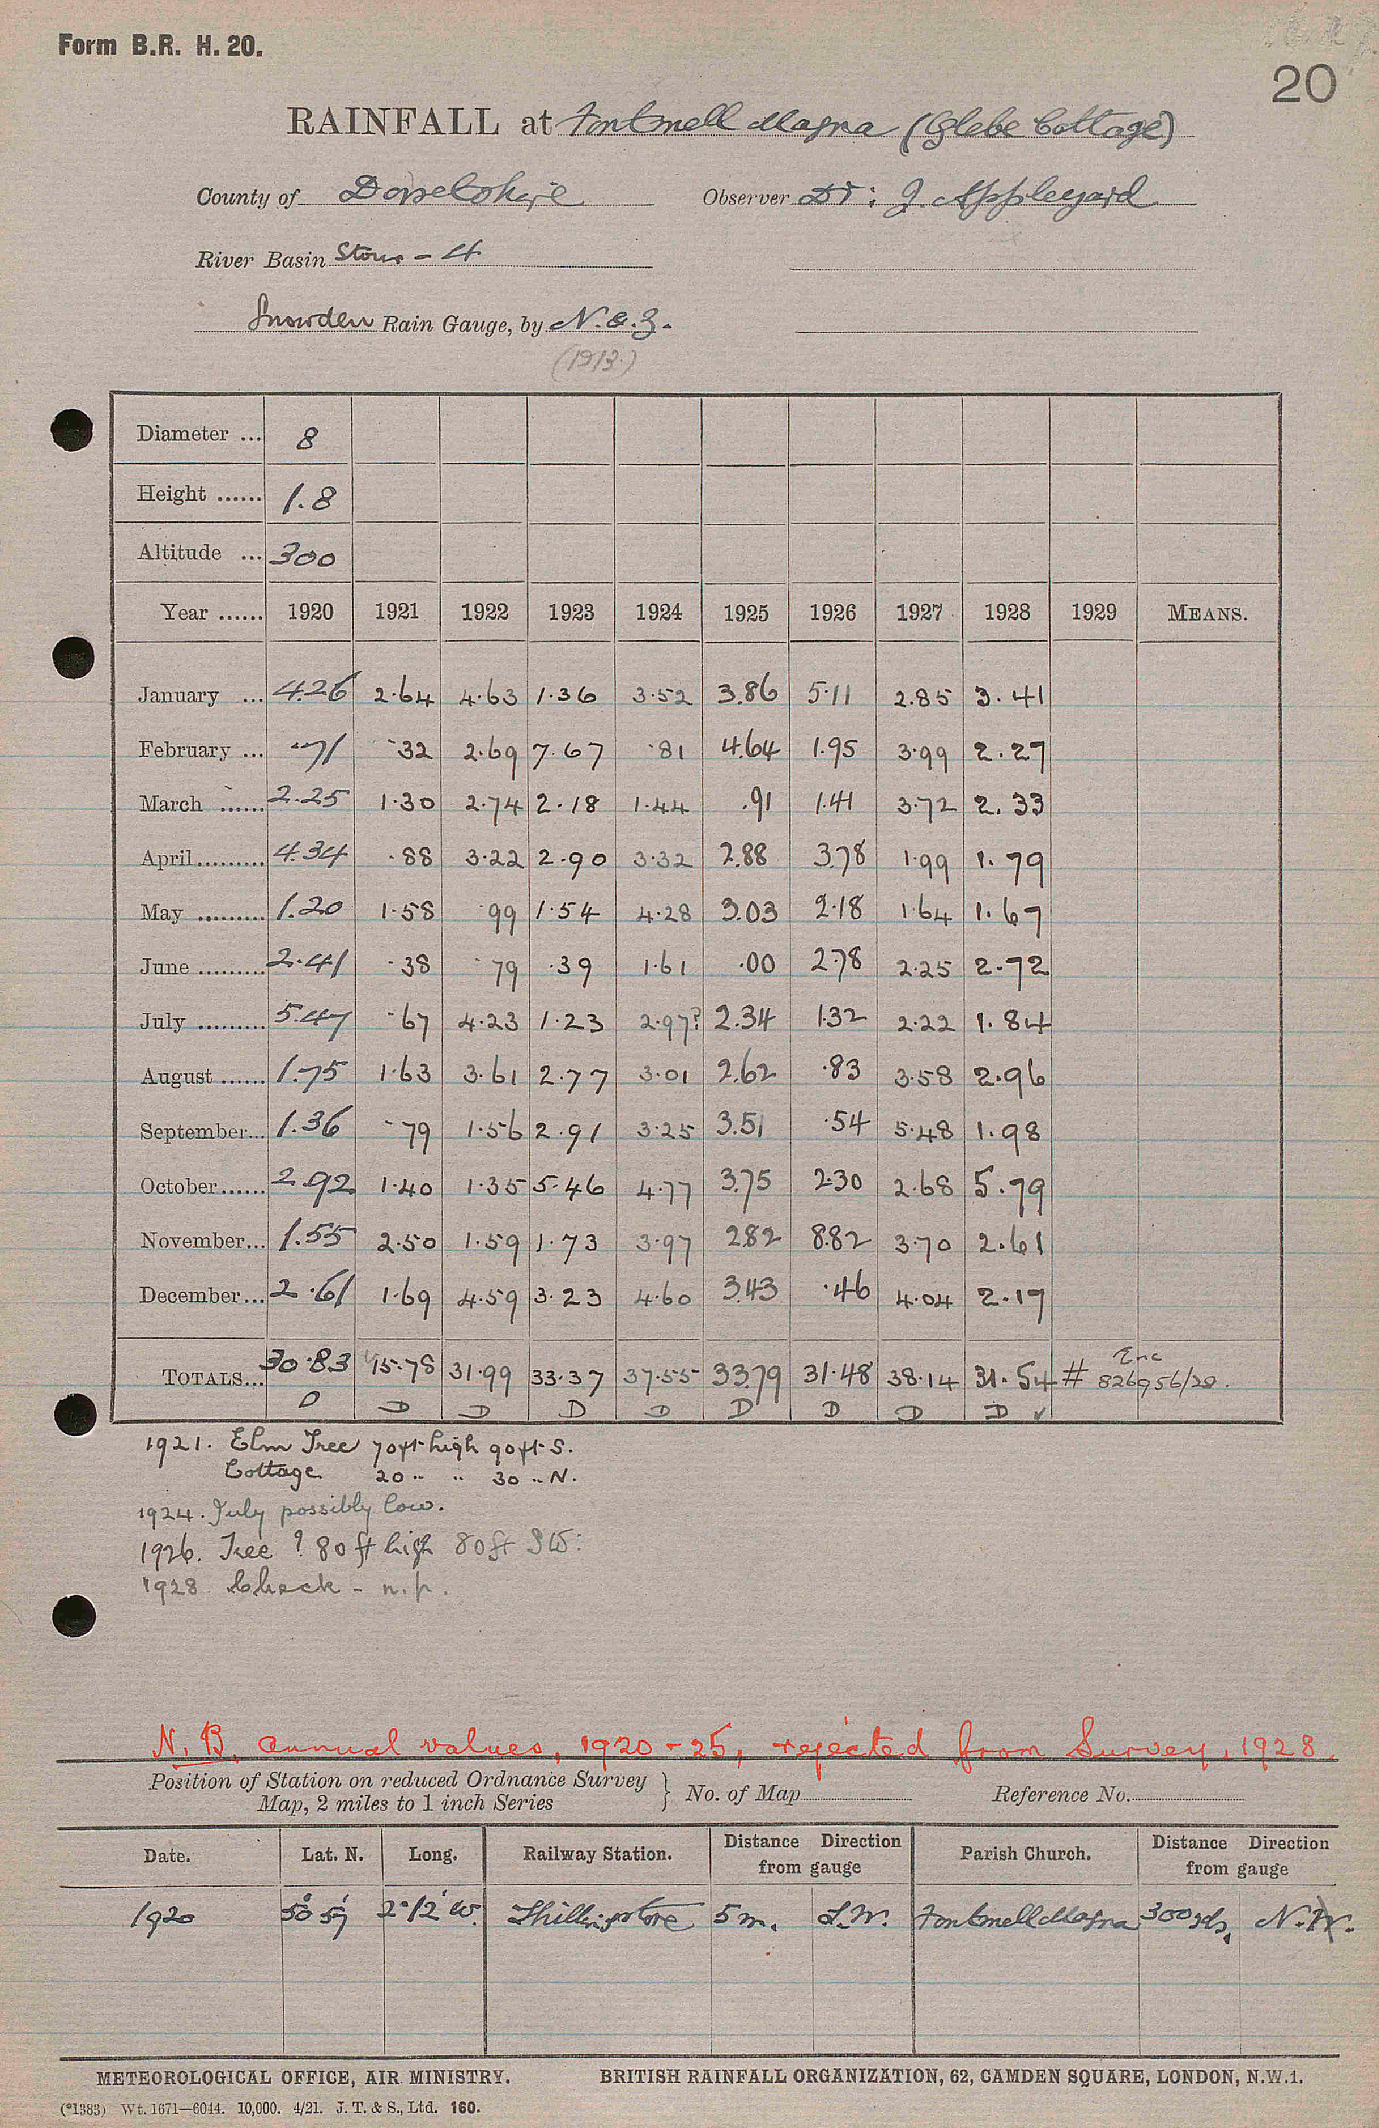 Form B.R. H. 20.
20
RAINFALL at Fontmell Magna (Glebe Cottage)
County of Dorsetshire Observer Dr: J. Appleyard
River Basin Stour - 4
Snowden Rain Gauge, by N. & Z.
(1913.)
Diameter ... 8
Height ...... 1.8
Altitude ... 300
Year ...... 1920 1921 1922 1923 1924 1925 1926 1927 1928 1929 MEANS.
January ... 4.26 2.64 4.63 1.36 3.52 3.86 5.11 2.85 3.41
February ... .71 .32 2.69 7.67 .81 4.64 1.95 3.99 2.27
March ...... 2.25 1.30 2.74 2.18 1.44 .91 1.41 3.72 2.33
April ......... 4.34 .88 3.22 2.90 3.32 2.88 3.78 1.99 1.79
May ......... 1.20 1.58 .99 1.54 4.28 3.03 2.18 1.64 1.67
June ......... 2.41 .38 .79 .39 1.61 .00 2.78 2.25 2.72
July ......... 5.47 .67 4.23 1.23 2.97? 2.34 1.32 2.22 1.84
August ...... 1.75 1.63 3.61 2.77 3.01 2.62 .83 3.58 2.96
September... 1.36 .79 1.56 2.91 3.25 3.51 .54 5.48 1.98
October...... 2.92 1.40 1.35 5.46 4.77 3.75 2.30 2.68 5.79
November... 1.55 2.50 1.59 1.73 3.97 2.82 8.82 3.70 2.61
December... 2.61 1.69 4.59 3.23 4.60 3.43 .46 4.04 2.17
TOTALS... 30.83 15.78 31.99 33.37 37.55 33.79 31.48 38.14 31.54 # Enc 826956/28.
D D D D D D D D D ✓
1921. Elm Tree 70ft high 90ft S.
Cottage 20 " " 30 " N.
1924. July possibly low.
1926. Tree ? 80 ft high 80 ft SW:
1928 Check - n.p.
N.B. annual values, 1920-25, rejected from Survey, 1928.
Position of Station on reduced Ordnance Survey Map, 2 miles to 1 inch Series } No. of Map Reference No.
Date. Lat. N. Long. Railway Station. Distance Direction from gauge Parish Church. Distance Direction from gauge
1920 50° 57' 2° 12' W. Shillingstone 5 m. S.W. Fontmell Magna 300 yds. N.W.
METEOROLOGICAL OFFICE, AIR MINISTRY. BRITISH RAINFALL ORGANIZATION, 62, CAMDEN SQUARE, LONDON, N.W.1.
(*1383) Wt. 1671—6044. 10,000. 4/21. J. T. & S., Ltd. 160.